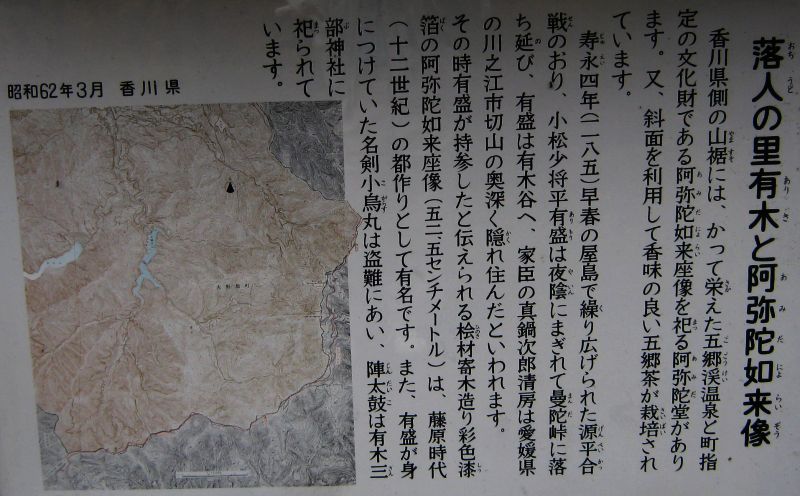 落人の里有木と阿弥陀如来像
香川県側の山裾には、かって栄えた五郷渓温泉と町指
定の文化財である阿弥陀如来座像を祀る阿弥陀堂があり
ます。又、斜面を利用して香味の良い五郷茶が栽培され
ています。
寿永四年(一一八五)早春の屋島で繰り広げられた源平合
戦のおり、小松少将平有盛は夜陰にまぎれて曼陀峠に落
ち延び、有盛は有木谷へ、家臣の真鍋次郎清房は愛媛県
の川之江市切山の奥深く隠れ住んだといわれます。
その時有盛が持参したと伝えられる桧材寄木造り彩色漆
箔の阿弥陀如来座像(五二・五センチメートル)は、藤原時代
(十二世紀)の都作りとして有名です。また、有盛が身
につけていた名剣小烏丸は盗難にあい、陣太鼓は有木三
部神社に
祀られて
います。
昭和62年3月 香川県